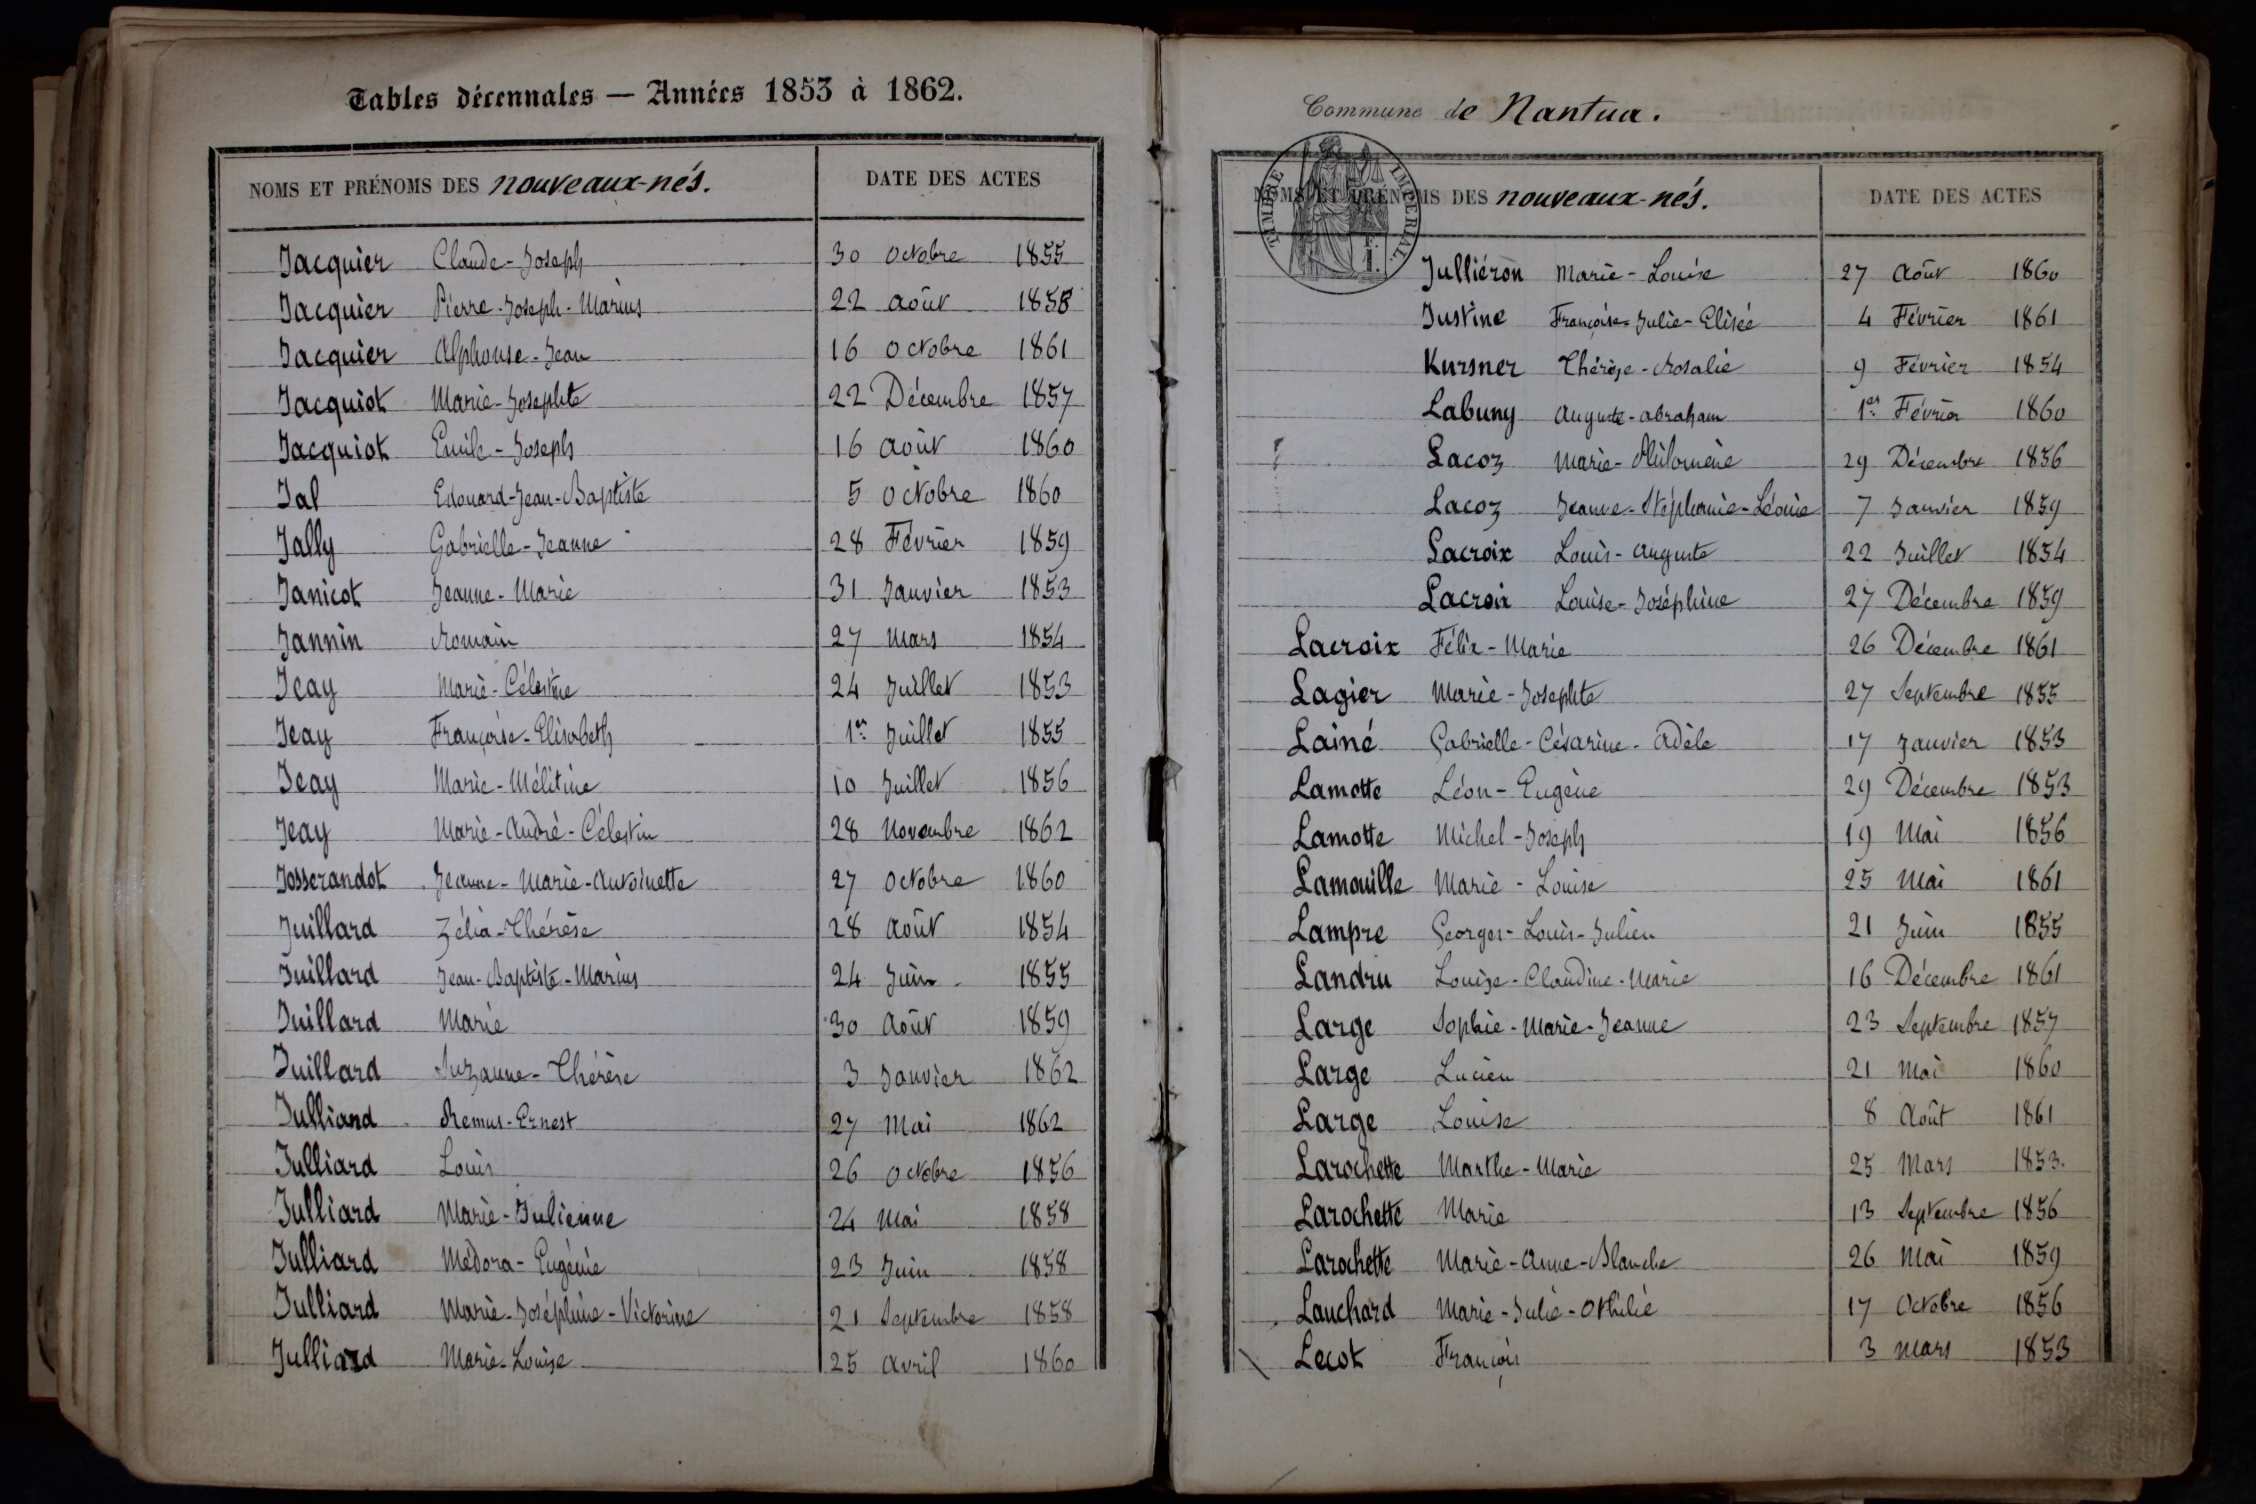 Tables décennales — Années 1853 à 1862.
NOMS ET PRÉNOMS DES nouveaux-nés. DATE DES ACTES
Jacquier Claude-Joseph 30 Octobre 1855
Jacquier Pierre-Joseph-Marius 22 Août 1858
Jacquier Alphonse-Jean 16 Octobre 1861
Jacquiot Marie-Josephte 22 Décembre 1857
Jacquiot Emile-Joseph 16 Août 1860
Jal Edouard-Jean-Baptiste 5 Octobre 1860
Jally Gabrielle-Jeanne 28 Février 1859
Janicot Jeanne-Marie 31 Janvier 1853
Jannin Romain 27 Mars 1854
Jeay Marie-Célestine 24 Juillet 1853
Jeay Françoise-Elisabeth 1er Juillet 1855
Jeay Marie-Mélitine 10 Juillet 1856
Jeay Marie-André-Célestin 28 Novembre 1862
Josserandot Jeanne-Marie-Antoinette 27 Octobre 1860
Juillard Zélia-Thérèse 28 Août 1854
Juillard Jean-Baptiste-Marius 24 Juin 1855
Juillard Marie 30 Août 1859
Juillard Suzanne-Thérèse 3 Janvier 1862
Julliand Remus-Ernest 27 Mai 1862
Julliard Louis 26 Octobre 1856
Julliard Marie-Julienne 24 Mai 1858
Julliard Médora-Eugénie 23 Juin 1858
Julliard Marie-Joséphine-Victorine 21 Septembre 1858
Julliard Marie-Louise 25 Avril 1860
Commune de Nantua.
TIMBRE IMPÉRIAL
NOMS ET PRÉNOMS DES nouveaux-nés. DATE DES ACTES
Julliéron Marie-Louise 27 Août 1860
Justine Françoise-Julie-Elisée 4 Février 1861
Kursner Thérèse-Rosalie 9 Février 1854
Labuny Auguste-Abraham 1er Février 1860
Lacoz Marie-Philomène 29 Décembre 1856
Lacoz Jeanne-Stéphanie-Léonie 7 Janvier 1859
Lacroix Louis-Auguste 22 Juillet 1854
Lacroix Louise-Joséphine 27 Décembre 1859
Lacroix Félix-Marie 26 Décembre 1861
Lagier Marie-Josephte 27 Septembre 1855
Lainé Gabrielle-Césarine-Adèle 17 Janvier 1853
Lamotte Léon-Eugène 29 Décembre 1853
Lamotte Michel-Joseph 19 Mai 1856
Lamouille Marie-Louise 25 Mai 1861
Lampre Georges-Louis-Julien 21 Juin 1855
Landru Louise-Claudine-Marie 16 Décembre 1861
Large Sophie-Marie-Jeanne 23 Septembre 1857
Large Lucien 21 Mai 1860
Large Louise 8 Août 1861
Larochette Marthe-Marie 25 Mars 1853.
Larochette Marie 13 Septembre 1856
Larochette Marie-Anne-Blanche 26 Mai 1859
Lauchard Marie-Julie-Othilie 17 Octobre 1856
Lecot François 3 Mars 1853